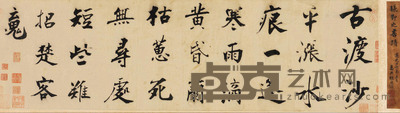 古渡沙
平漲水
痕一篷
寒雨滴
黄昏蘭
枯蕙死
無尋處
短些難
招楚客
魂